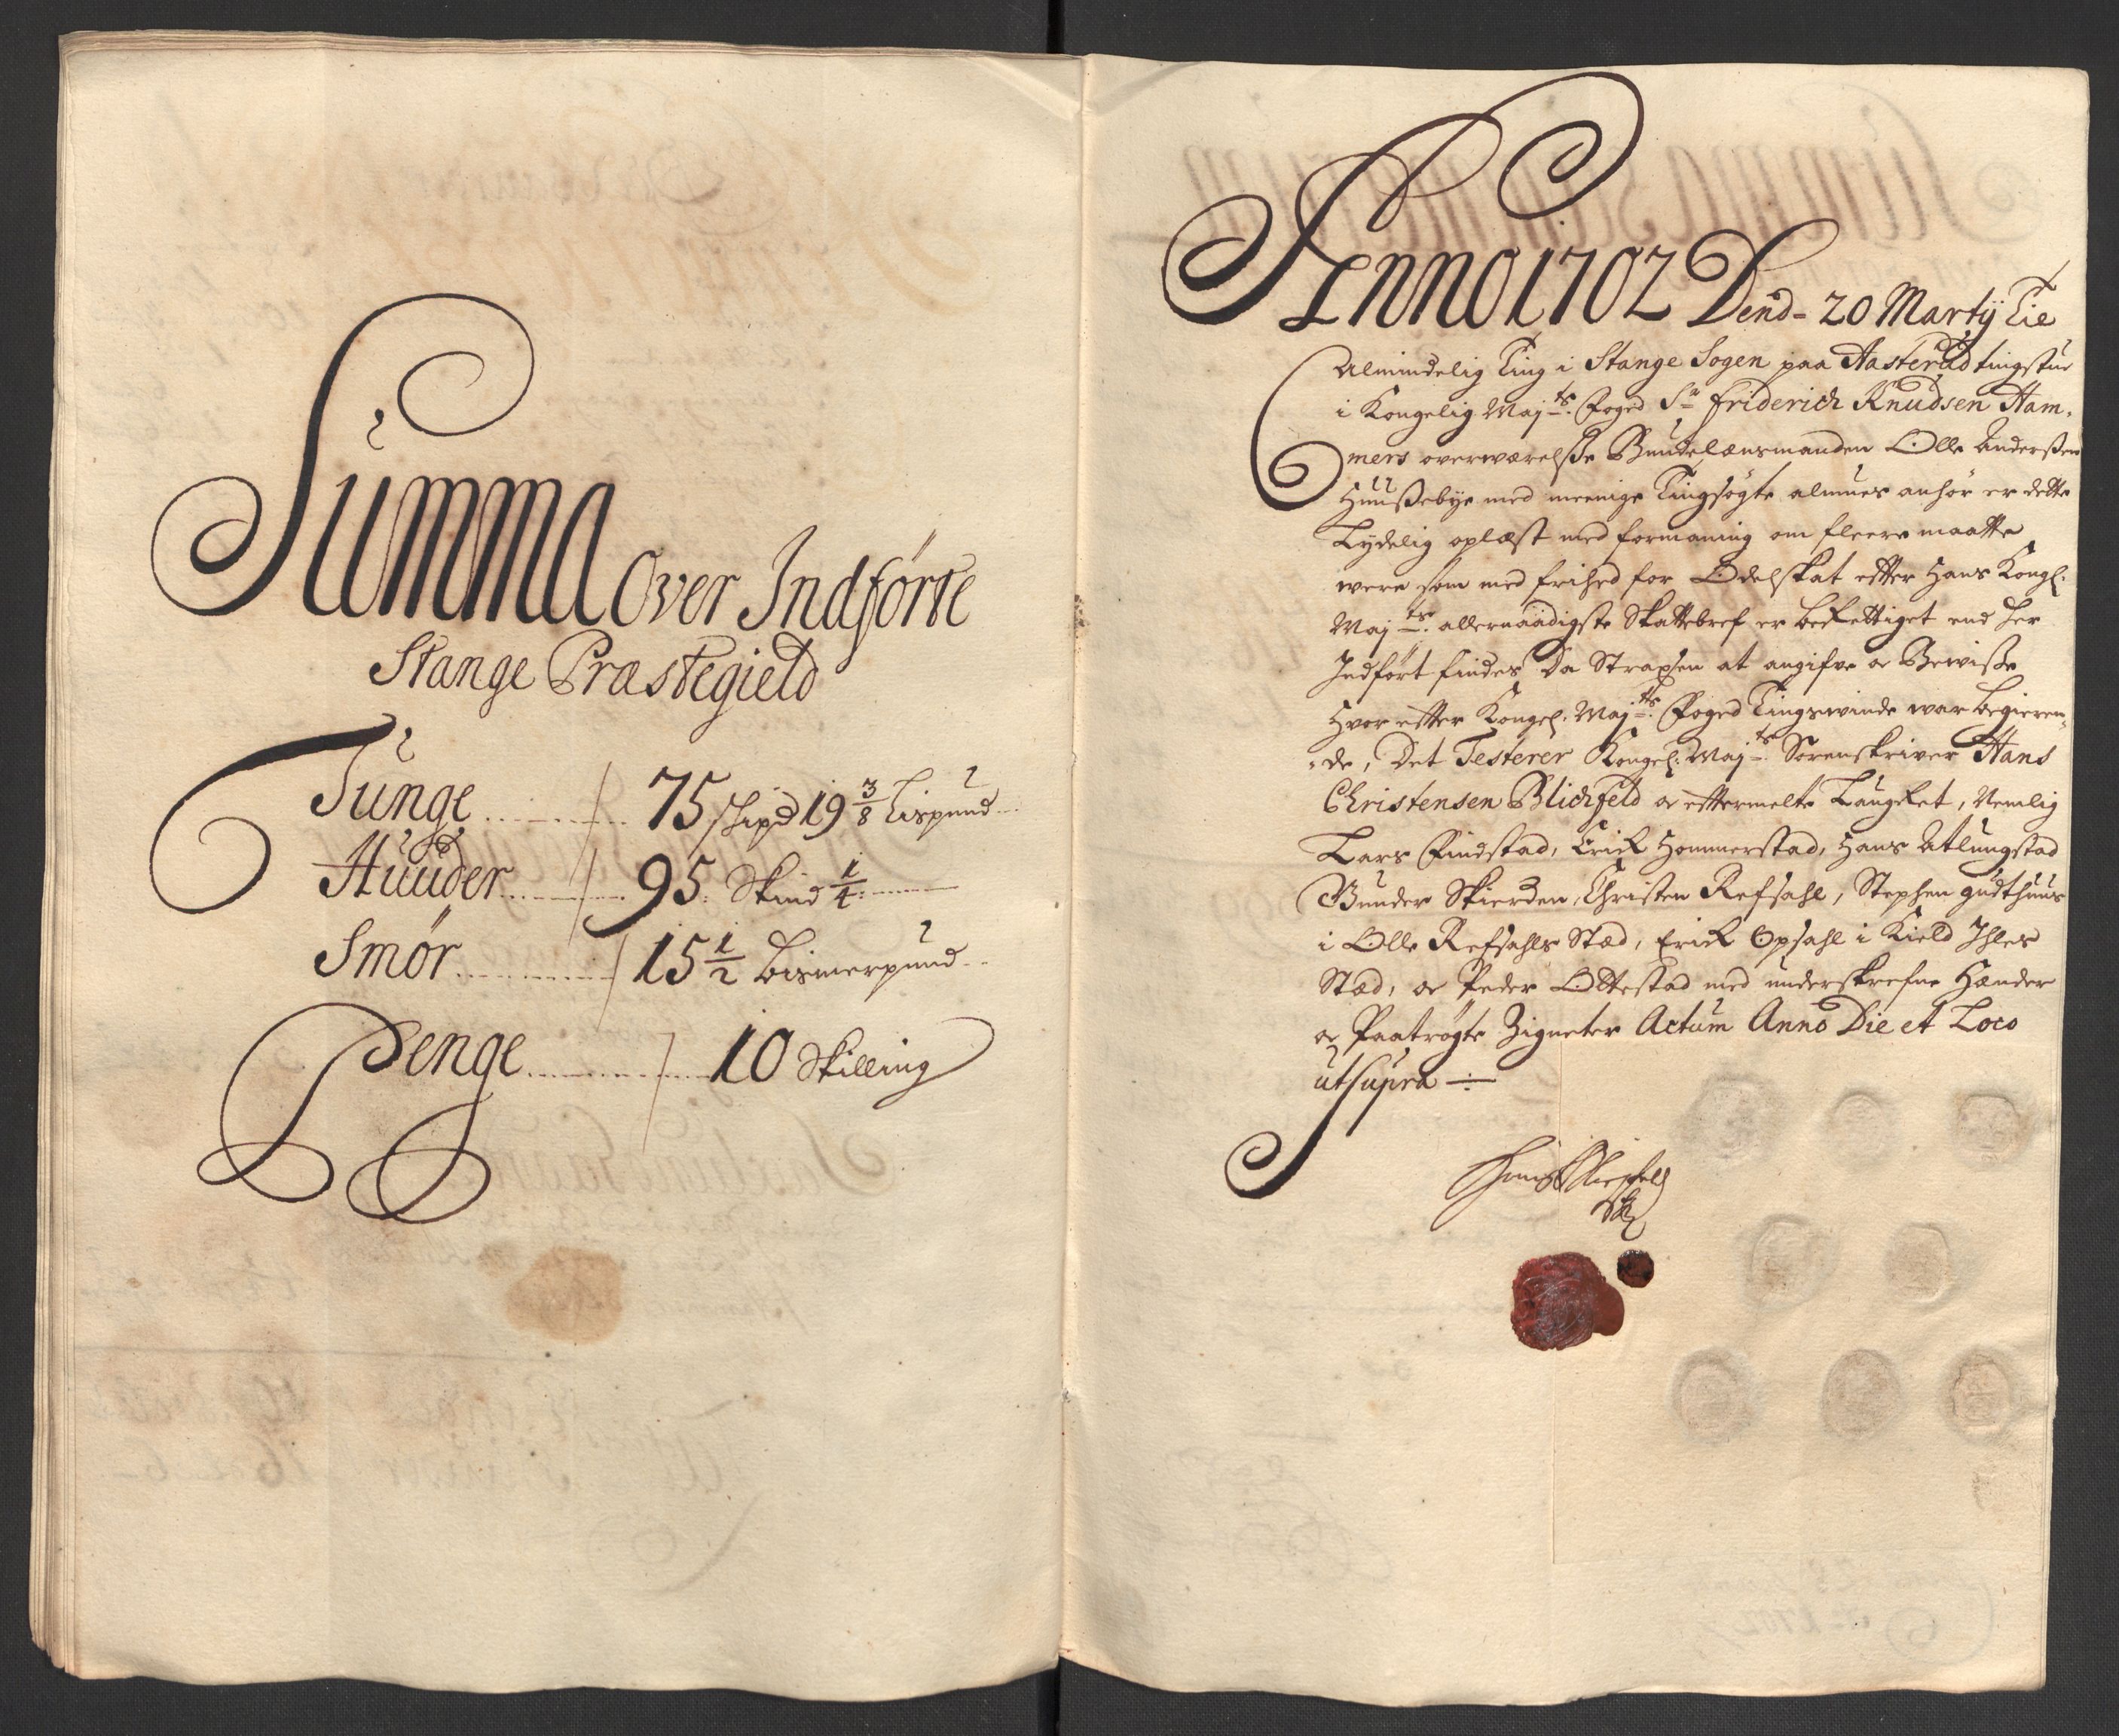 Summa Over Indførte
Stange Præstegield
Tunge 75 skipd 19 3/8 Lispund
Huuder 95: Skind 1/4:
Smør 15 1/2 Bismerpund
Penge 10 Skilling
Anno 1702 Dend 20 Martij Til
Almindelig Ting i Stange Sogen paa Aasterud tingstue
i Kongelig Maj:ts: Foged Sr Friderich Knudsen Ham,
mers overværelsse Bundelænsmanden Olle Anderssen
Huussebye med meenige Tingsøgte almues anhør er dette
Lydelig oplæst med formaning om fleere maatte
were som med frihed for Odelskat efter Hans Kongl:
Maj:ts: allernaadigste Skattebref er berettiget end her
Indført findes Da Straxsen at angifve oc Bewisse
Hvor efter Kongel: Maj:ts: Foged Tingswinde war begieren,
de, Det Testerer Kongel: Maj:ts: Sorenskriver Hans
Christensen Blichfeld oc eftermelte Laugret, Nemlig
Lars Findstad, Erick Hommerstad, Hans Atlungstad
Gunder Skierden, Christen Refsahl, Stephen Gudthuus
i Olle Refsahls Stæd, Erick Opsahl i Kield Ihles
Stæd, oc Peder Ottestad med underskrefne Hænder
oc Paatrøgte Zigneter Actum Anno Die et Loco
utsupra